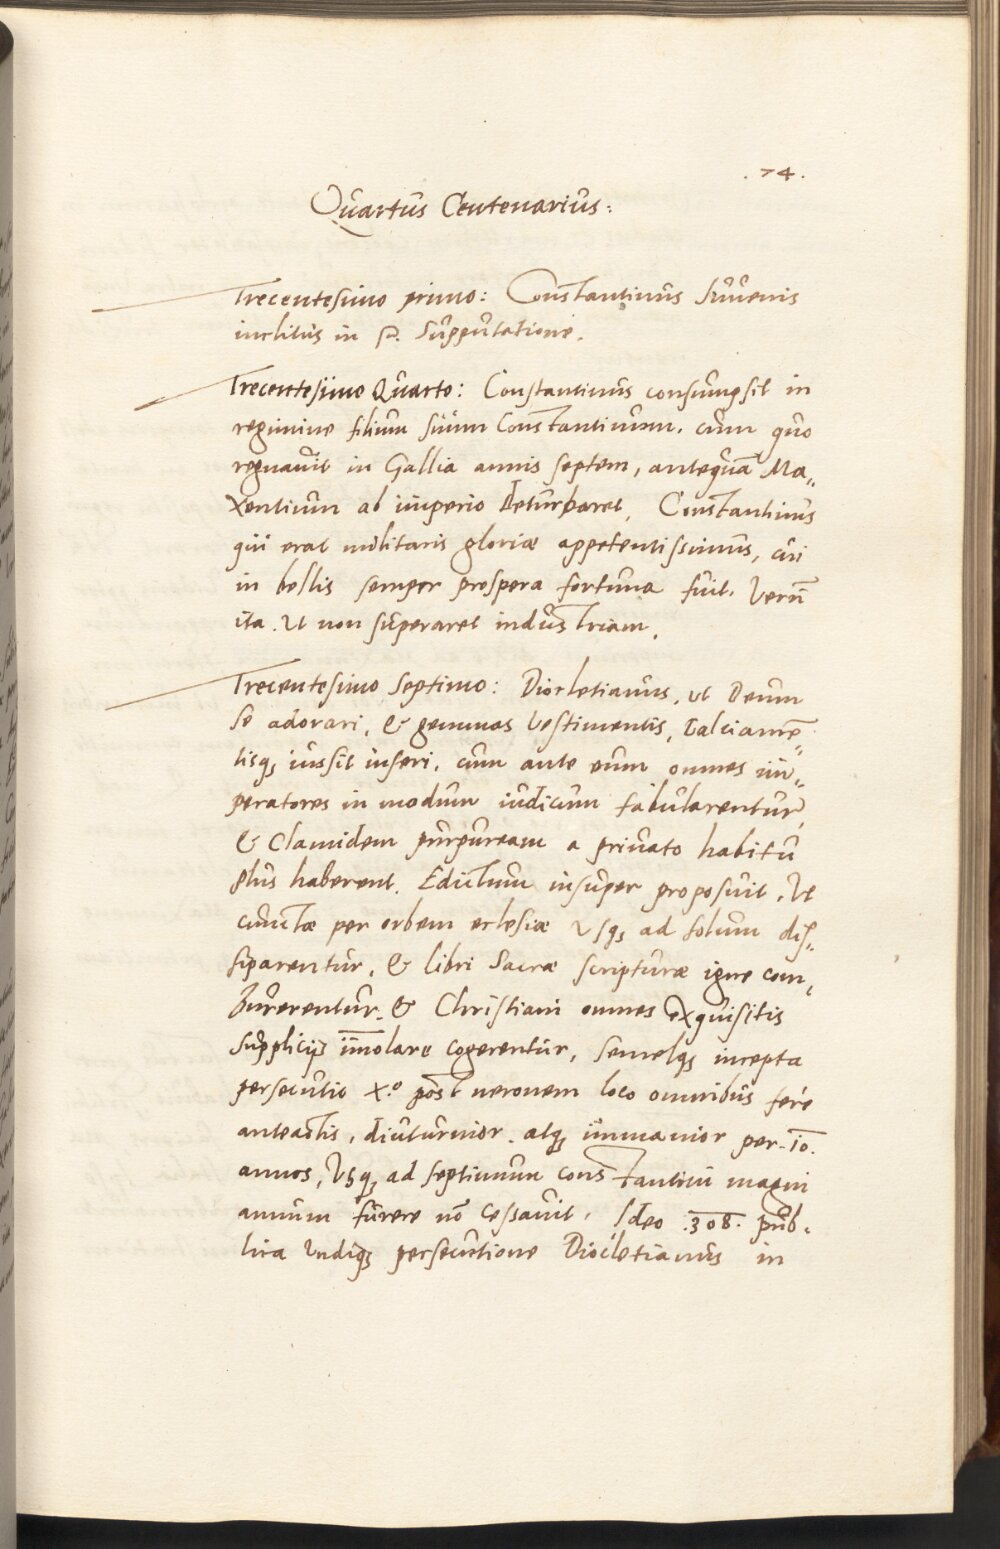 .74.
Quartus Centenarius:
Trecentesimo primo: Constantinus Iuvenis
inclitus in sup. Supputatione.
Trecentesimo Quarto: Constantinus consumpsit in
regimine filium suum Constantinum, cum quo
regnavit in Gallia annis septem, antequã Ma„
xentium ab imperio deturbaret, Constantinus
qui erat militaris gloriæ appetentissimus, cui
in bellis semper prospera fortuna fuit. Verũ
ita. Ut non superaret industriam.
Trecentesimo septimo: Diocletianus, ut Deum
se adorari, & gemmas vestimentis, Calciamẽ„
tisq; iussit inseri, cum ante eum omnes im„
peratores in modum iudicum fabularentur,
& Clamidem purpuream a privato habitu
plus haberent. Edictum insuper proposuit, Ut
cunctæ per orbem eclesiæ usq; ad solum dis„
siparentur, & libri Sacræ scripturæ igne com„
burerentur. & Christiani omnes exquisitis
supplicijs im̃olare cogerentur, semelq; incepta
persecutio X.º post neronem loco omnibus fere
anteactis, diuturnior. atq; im̃manior per .10.
annos, Usq; ad septimum constantini magni
annum furere nõ cessavit. Ideo .308. pub„
lica undiq; persecutione Diocletianus in